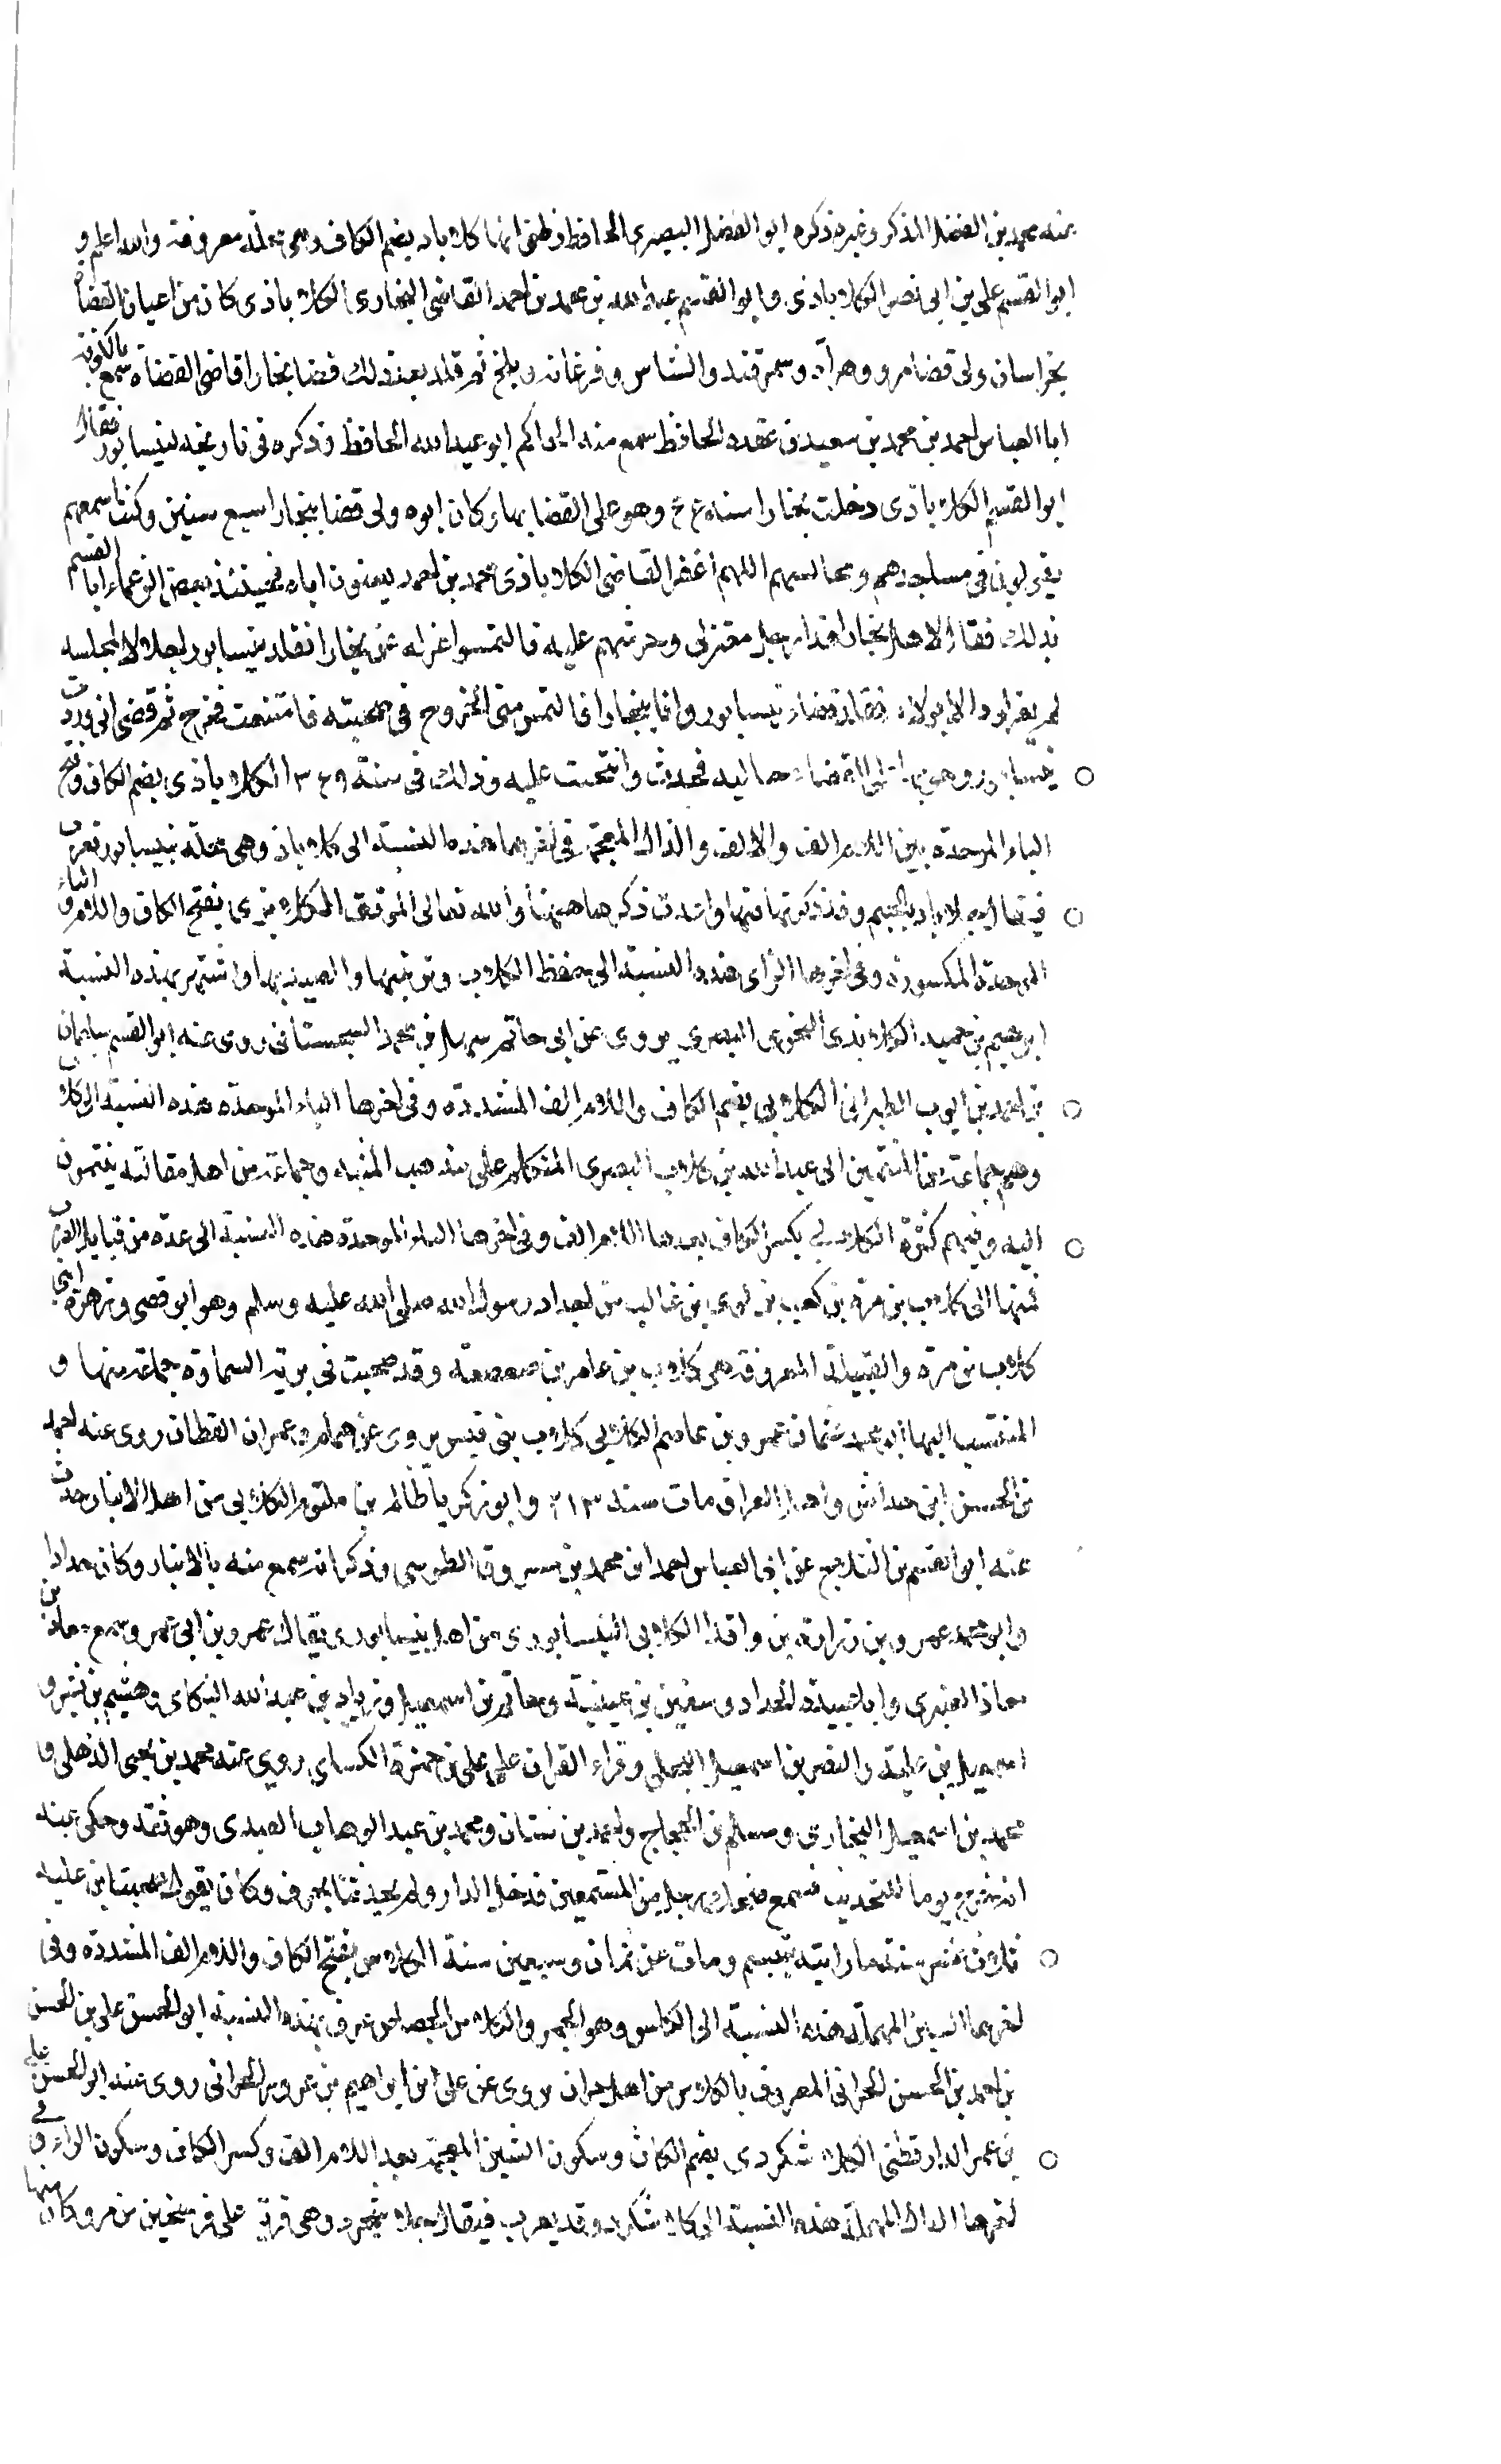 عنه محمد بن الفضل المذكر وغيره ذكره ابو الفضل البصيرى الحافظ وظنى انها كلاباد بضم الكاف وهى محلة معروفة والله اعلم و
ابو القسم على بن ابى نصر الكلاباذى وابو القسم عبد الله بن محمد بن احمد القاضى البخارى الكلاباذى كان من اعيان القضاة
بخراسان ولى قضا مرو وهراة وسمرقند والشاس وفرغانه وبلخ ثم قلد بعد ذلك قضا بخارا قاضى القضاة سمع بالكوفة
ابا العباس احمد بن محمد بن سعيد بن عقدة الحافظ سمع منه الحاكم ابو عبد الله الحافظ وذكره فى تاريخه لنيسابور فقال
ابو القسم الكلاباذى دخلت بخارا سنه ع ع وهو على القضا بها وكان ابوه ولى قضا بخارا سبع سنين وكنا سمعهم
يقولون فى مساجدهم ومجالسهم اللهم اغفر القاضى الكلاباذى محمد بن احمد يعنون اباه فحينئذ بعض الزعماء ابا القسم
بذلك فقال لاهل بخارا هذا رجل معتزلى وحرشهم عليه فالتمسوا عزله عن بخارا فقلد نيسابور
لم يقرا وقلد قضاء نيسابور وانا ببخارا فالتمس منى الخروج فى صحبته فامتنعت فخرج ثم قضى انى وردت
نيسابور وهو بها على القضاء فحدث وانتخبت عليه وذلك فى سنة ٣٤٩ الكلاباذى بضم الكاف وفتح
الباء الموحدة بين اللام الف والالف والذال المعجمة فى اخرها هذه النسبة الى كلاباذ وهى محلة بنيسابور تعرب
فيقال جلاباد بالجيم وقد ذكرتها فيها واعدت ذكرها ههنا والله تعالى الموفق الكلابزى بفتح الكاف واللام و الباء
الموحدة المكسورة وفى اخرها الزاى هذه النسبة الى حفظ الكلاب وتربيتها والصيد بها واشتهر بهذه النسبة
ابرهيم بن حميد الكلابذى النحوى البصرى يروى عن ابى حاتم سهل بن محمد السجستانى روى عنه ابو القسم سليمان
بن احمد بن ايوب الطبرانى الكلابى بضم الكاف واللام الف المشددة وفى اخرها الباء الموحدة هذه النسبة الى كلاب
وهم جماعة من المنتمين الى عبد الله بن كلاب البصرى المتكلم على مذهب المثبته وجماعة من اهل مقالته ينتمون
اليه وفيهم كثرة الكلابى بكسر الكاف بعدها اللام الف وفى اخرها الباء الموحدة هذه النسبة الى عدة من قبايل العرب
فمنها الى كلاب بن مرة بن كعب بن لوى بن غالب من اجداد رسول الله صلى الله عليه وسلم وهو ابو قصى وزهرة ابنى
كلاب بن مرة والقبيلة المعروفة هى كلاب بن عامر بن صعصعة وقد صحبت فى برية السماوة جماعة منها و
المنتسب اليها ابو عثمان عمرو بن عاصم الكلابى كلاب بنى قيس يروى عن همام وعمران القطان روى عنه احمد
بن الحسن ابن خداش واهل العراق مات سنة ٢١٣ وابو زكريا ظالم بن مكتوم الكلابى من اهل الانبار حدث
عنه ابو القسم بن الثلاج عن ابى العباس احمد ابن محمد بن مسروق الطوسى وذكر انه سمع منه بالانبار وكان حدادا
وابو محمد عمرو بن زرارة بن واقد الكلابى النيسابورى من اهل نيسابور يقال عمرو بن ابى عمرو سمع معاذ بن
معاذ العنبرى وابا عبيدة الحداد وسفين بن عيينة وحاتم بن اسمعيل وزياد بن عبد الله البكاى وهشيم بن بشير و
اسمعيل بن علية والنضر بن اسمعيل البجلى وقراء القران على على بن حمزة الكساى روى عنه محمد بن يحيى الذهلى و
محمد بن اسمعيل البخارى ومسلم بن الحجاج واحمد بن سنان ومحمد بن عبد الوهاب العبدى وهو ثقة وحكى عنه
انه خرج يوما للتحديث فسمع ضحك رجل من المستمعين فدخل الدار ولم يحدثنا بحرف وكان يقول صحبت ابن علية
ثلاث عشر سنة ما رايته تبسم ومات عن ثمان وسبعين سنة الكلاس بفتح الكاف واللام الف المشددة وفى
اخرها السين المهملة هذه النسبة الى الكلس وهو الجص والكلاس الجصاص عرف بهذه النسبة ابو الحسن على بن الحسن
بن احمد بن الحسن الحرانى المعروف بالكلاس من اهل حران يروى عن على ابن ابراهيم بن عزون الحرانى روى عنه ابو الحسن على
بن عمر الدارقطنى الكلاشكردى بضم الكاف وسكون الشين المعجمة بعد اللام الف وكسر الكاف وسكون الراء وفى
اخرها الدال المهملة هذه النسبة الى كلاشكرد وقد يعرب فيقال جلاشجرد وهى قرية على فرسخين من مرو كان منها